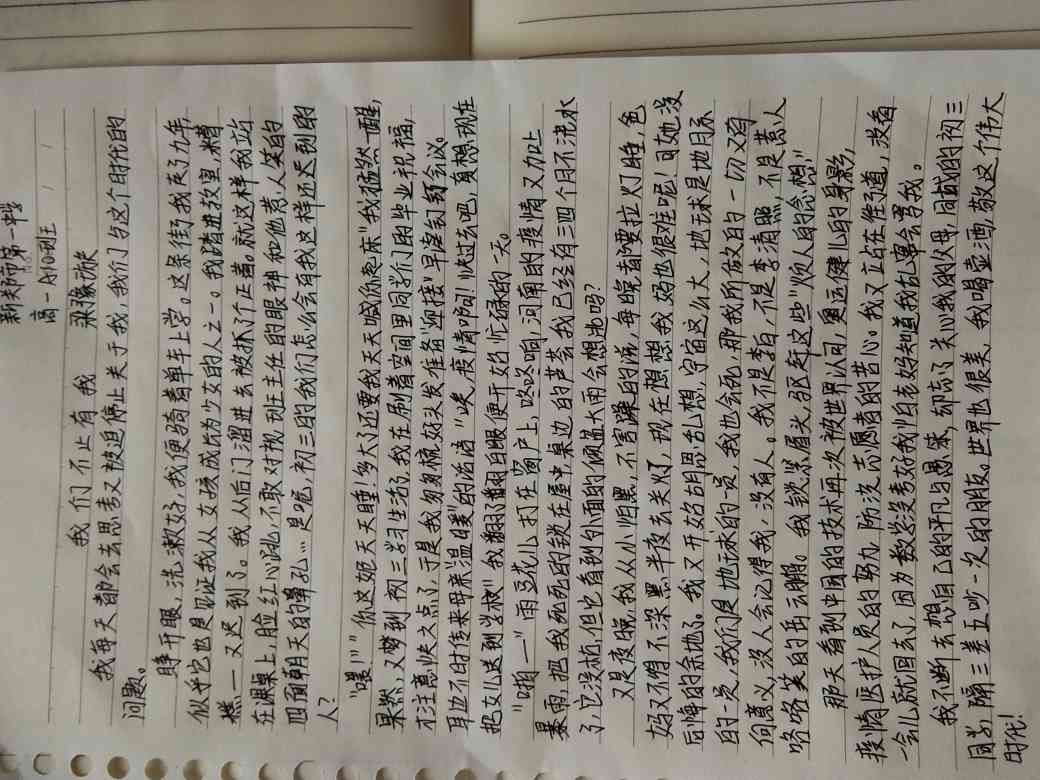 新关师第一中学
高一A10班王
我们不止有我 梁家漩
我每天都会去思考又被迫停止关于我,我们与这个时代的
问题。
睁开眼,洗漱好,我便骑着单车上学。这条街我走了九年,
似乎它也是见证我从女孩成长为少女的人之一。我踏进教室,糟
糕——又迟到了。我从后门溜进去被抓了个正着。就这样我站
在课桌上,脸红心跳,不敢对视班主任的眼神和他惹人笑的
四面朝天的鼻孔…是吧,初三的我们怎么会有我这样还迟到的
人?
“喂!”“你这姬天天睡!多大了还要我天天喊你起床”我猛然一醒,
果然,又梦到初三学习生活了,我在刷着空间里同学们的毕业祝福,
才注意快久点了,于是我匆匆梳好头发准备迎接“早唐钉钉会议。
耳边不时传来母亲“温暖”的话语“唉,疫情啊问!快过去吧,真想现在
把女儿送到学校”我翻了翻白眼便开始忙碌的一天。
“啪——”雨豆花儿打在窗户上,咚咚响,河南的疫情又加上
暴雨,把我死死的锁在屋中,桌边的芦荟我已经有三四个月不浇水
了,它没枯,但也看到外面的倾盆大雨会想逃吗?
又是夜晚,我从小怕黑,不害臊的说,每晚都要拉灯睡,爸
妈又不得不深黑半夜去关灯,现在想想,我妈也很难呢!可她没
后悔的余地了。我又开始胡思乱想,宇宙这么大,地球是地脉
的一员,我们是地球的一员,我也会死,那我所做的一切又有
何意义,没人会记得我,没有人。我不是李白,不是李清照,不是黄人
咯咯笑的岳云鹏。我锁紧眉头,驱赶这些“烦人的念想”
那天看到中国的技术再次被世界认可,奥运健儿的身影,
疫情医护人员的努力,防汛志愿者的苦心。我又立在往了道,求着
一会儿就回去了,因为数学没考好我怕老妈知道我乱事会骂我。
我不断去想自己的平凡与愚笨,却忘了关心我的父母,同窗的初三
同学,隔三差五吵一次的朋友。世界也很美,我喝壹酒,敬这个伟大
时代!